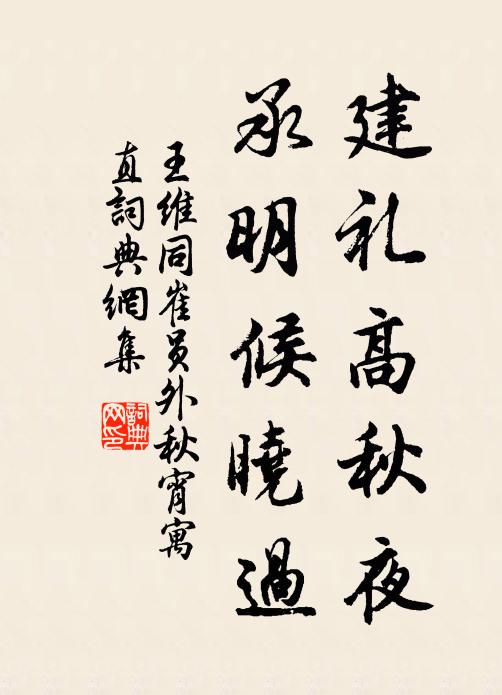 建礼高秋夜
承明候曉過
王維同崔員外秋宵寓
直詞典網集
詞典网印